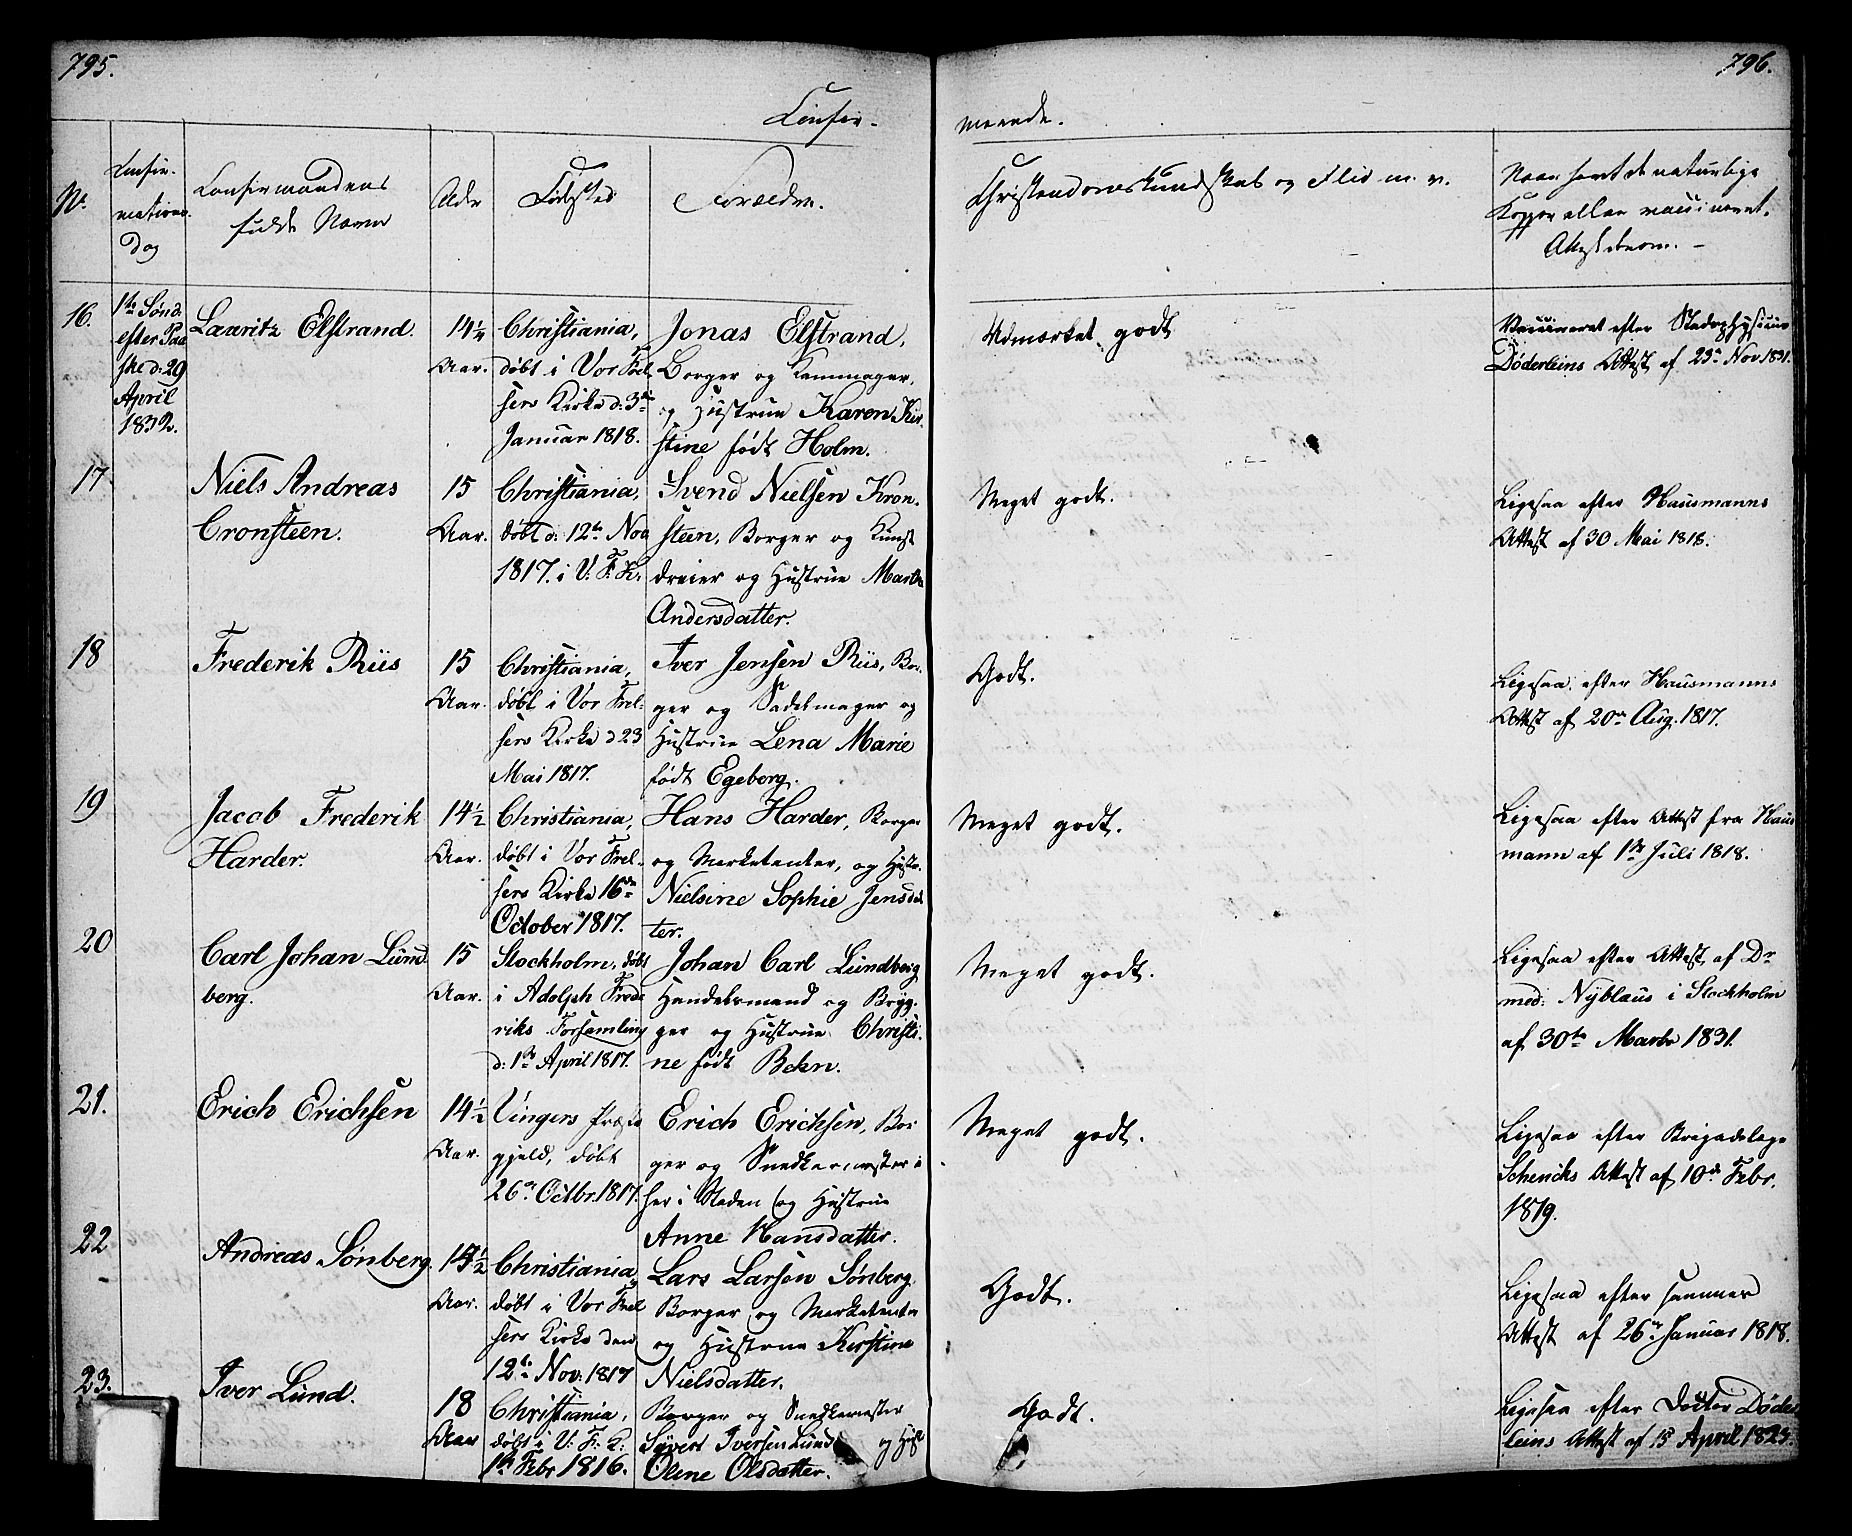 795.
796.
Confir-
merede.
No.
Confir-
mations
Dag
Confirmandens
fulde Navn
Alder
Fødested
Forældre.
Christendomskundskab og Flid m. v.
Naar havt de naturlige
Kopper eller vaccineret.
Attest derom. -
16.
1te Sønd.
efter Paa
ske d: 29
April
1832.
Lauritz Elstrand.
14½
Aar.
Christiania,
døbt i Vor Frel
sers Kirke d: 3die
Januar 1818.
Jonas Elstrand,
Borger og Kammager,
og Hustrue Karen Kir-
stine født Holm.
Udmærket godt
Vaccineret efter Stadsphysicus
Døderleins Attest af 23de Nov 1831.
17
Niels Andreas
Cronsteen.
15
Aar.
Christiania,
døbt d: 12te Nov
1817. i V. F. K.
Svend Nielsen Kron-
steen, Borger og Kunst
dreier og Hustrue Marthe
Andersdatter.
Meget godt.
Ligesaa efter Hausmanns
Attest af 30 Mai 1818.
18
Frederik Riis
15
Aar.
Christiania,
døbt i Vor Frel-
sers Kirke d 23
Mai 1817.
Iver Jensen Riis, Bor-
ger og Sadelmager og
Hustrue Lena Marie
født Egeberg.
Godt.
Ligesaa efter Hausmanns
Attest af 20de Aug. 1817.
19
Jacob Frederik
Harder.
14½
Aar.
Christiania,
døbt i Vor Frel-
sers Kirke 16de
October 1817.
Hans Harder, Borger
og Marketenter, og Hustr.
Nielsine Sophie Jensdat
ter.
Meget godt.
Ligesaa efter Attest fra Haus
mann af 1ste Juli 1818.
20
Carl Johan Lund
berg.
15
Aar.
Stockholm, døbt
i Adolph Frede
riks Forsamling
d: 1ste April 1817.
Johan Carl Lundberg
Handelsmand og Bryg-
ger og Hustrue Christi-
ne født Behn.
Meget godt.
Ligesaa efter Attest af Dr
med: Nyblaus i Stockholm
af 30te Marts 1831.
21.
Erich Erichsen
14½
Aar.
Vingers Præste
gjeld, døbt
26de Octbr 1817.
Erich Erichsen, Bor
ger og Snedkermester i
her i Staden og Hustrue
Anne Hansdatter.
Meget godt.
Ligesaa efter Brigadelæge
Schencks Attest af 10de Febr.
1819.
22
Andreas Sønberg.
14½
Aar.
Christiania,
døbt i Vor Frel
sers Kirke den
12te Nov: 1817
Lars Larsen Sønberg
Borger og Marketenter
og Hustrue Kirstine
Nielsdatter.
Godt.
Ligesaa efter sammes
Attest af 26de Januar 1818.
23.
Iver Lund.
18
Aar
Christiania,
døbt i V. F. K.
1ste Febr 1816.
Borger og Snedkermester
Sivert Iversen Lund og Hust
Oline Olsdatter.
Godt.
Ligesaa efter Doctor Døder
leins Attest af 15 April 1823.